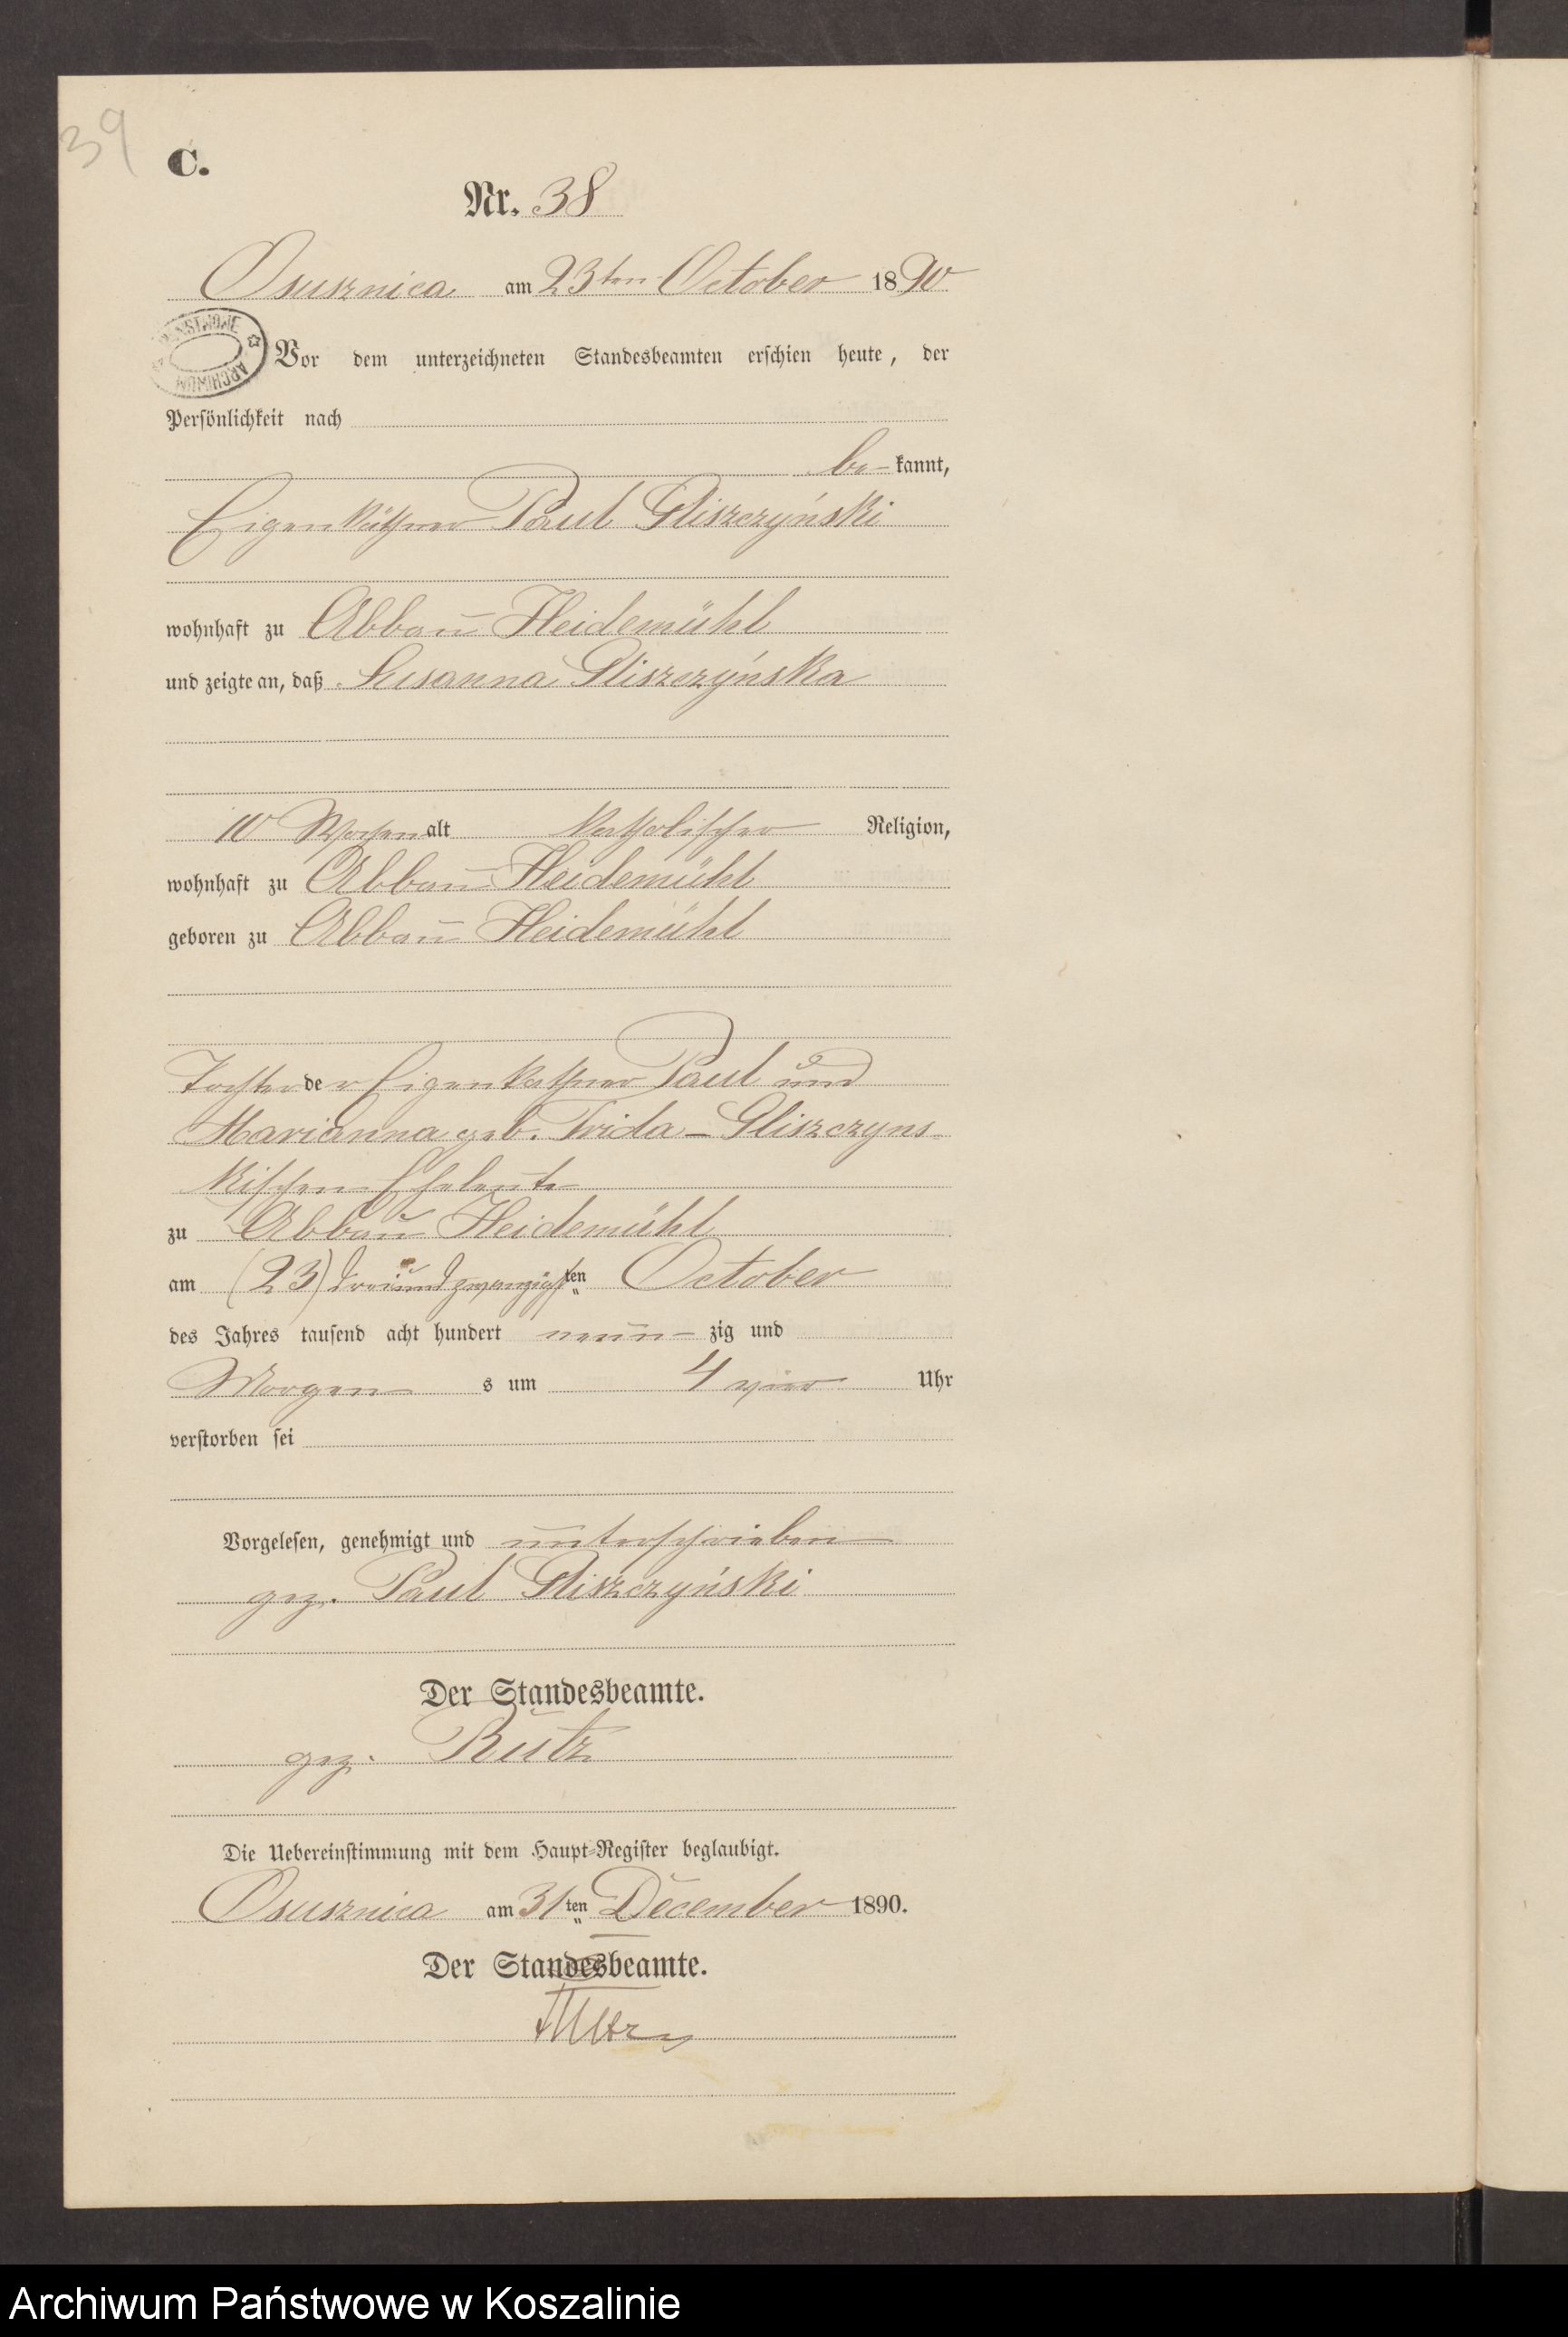 39
C.
Nr. 38
Osusznica am 23ten October 1890
Vor dem unterzeichneten Standesbeamten erschien heute, der
Persönlichkeit nach
be-kannt,
Eigenkäthner Paul Gliszczyński
wohnhaft zu Abbau Heidemühl
und zeigte an, daß Susanna Gliszczyńska
10 Wochen alt katholischer Religion,
wohnhaft zu Abbau Heidemühl
geboren zu Abbau Heidemühl
Tochter der Eigenkathner Paul und
Marianna geb. Trida-Gliszczyns-
kischen Eheleute
zu Abbau Heidemühl
am (23) dreiundzwanzigsten October
des Jahres tausend acht hundert neun-zig und
Morgens um 4 vier Uhr
verstorben sei
Vorgelesen, genehmigt und unterschrieben
gez. Paul Gliszczyński
Der Standesbeamte.
gez. Rutz
Die Uebereinstimmung mit dem Haupt-Register beglaubigt.
Osusznica am 31ten December 1890.
Der Standesbeamte.
Rutz
ARCHIWUM PAŃSTWOWE
Archiwum Państwowe w Koszalinie